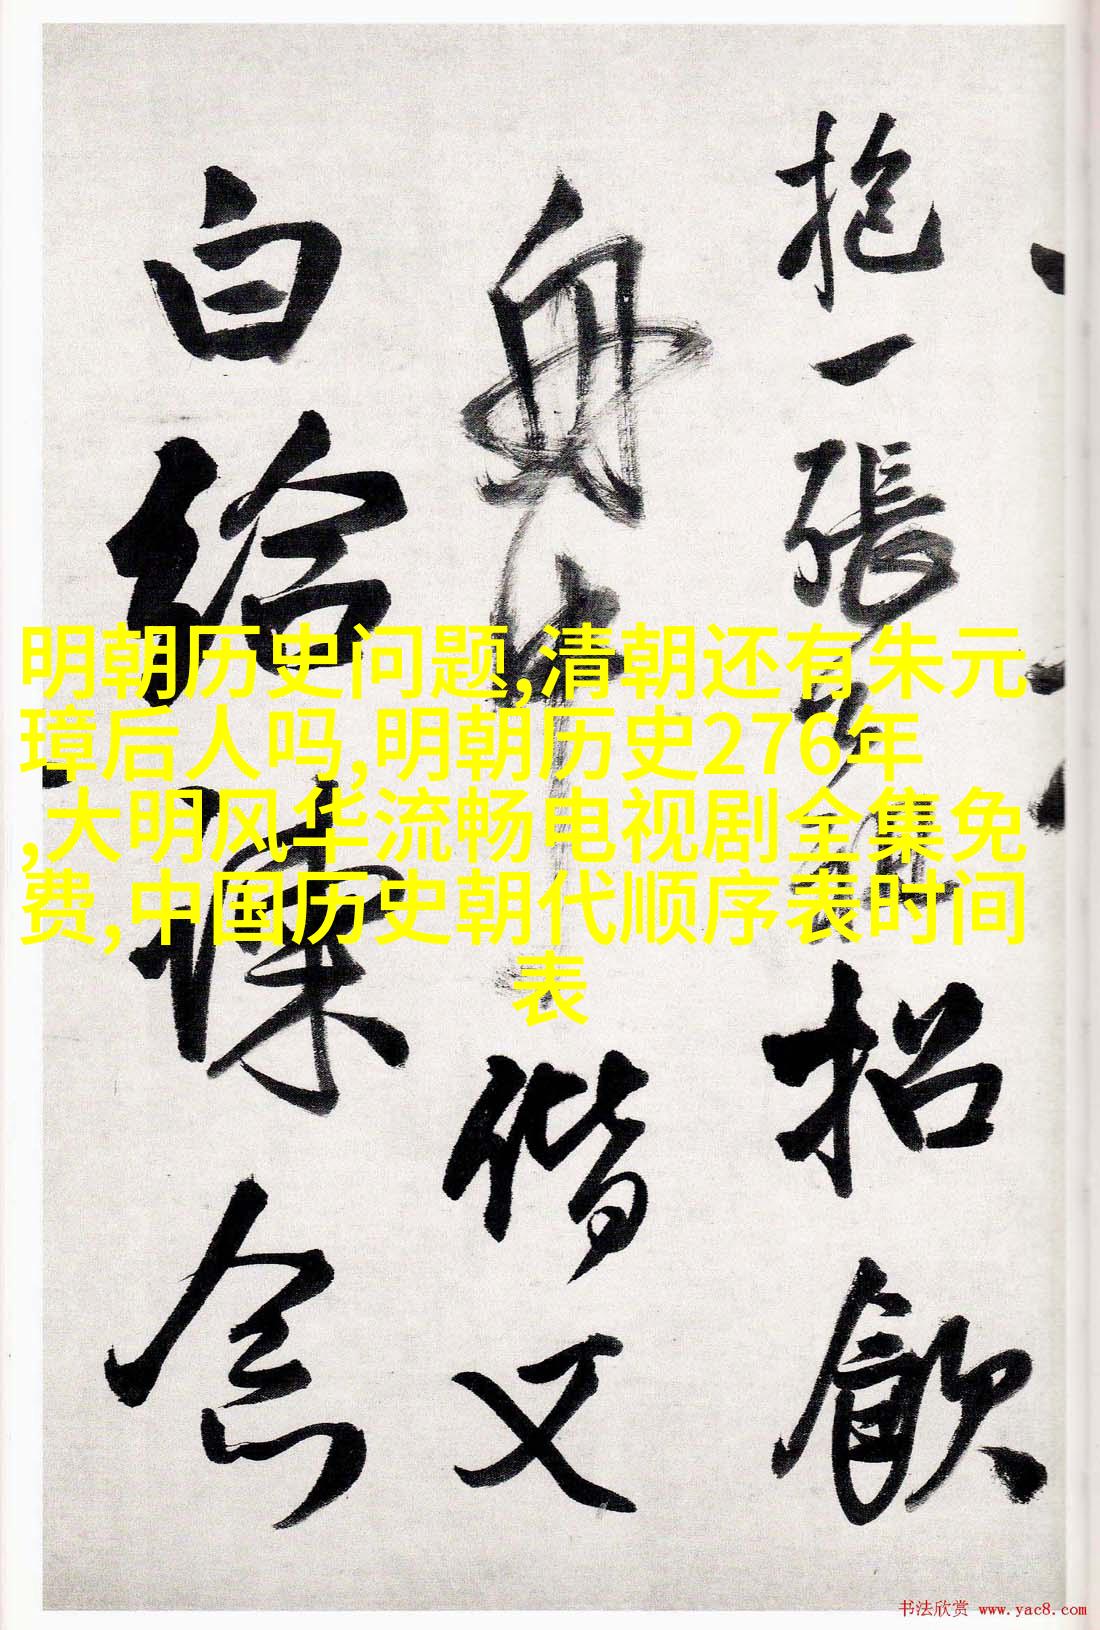 抱一張
招飲
舟
偕又
白給諫
念
明朝历史问题,清朝还有朱元
璋后人吗,明朝历史276年
,大明风华流畅电视剧全集免
费,中国历史朝代顺序表时间
表
书法欣赏 www.yac8.com